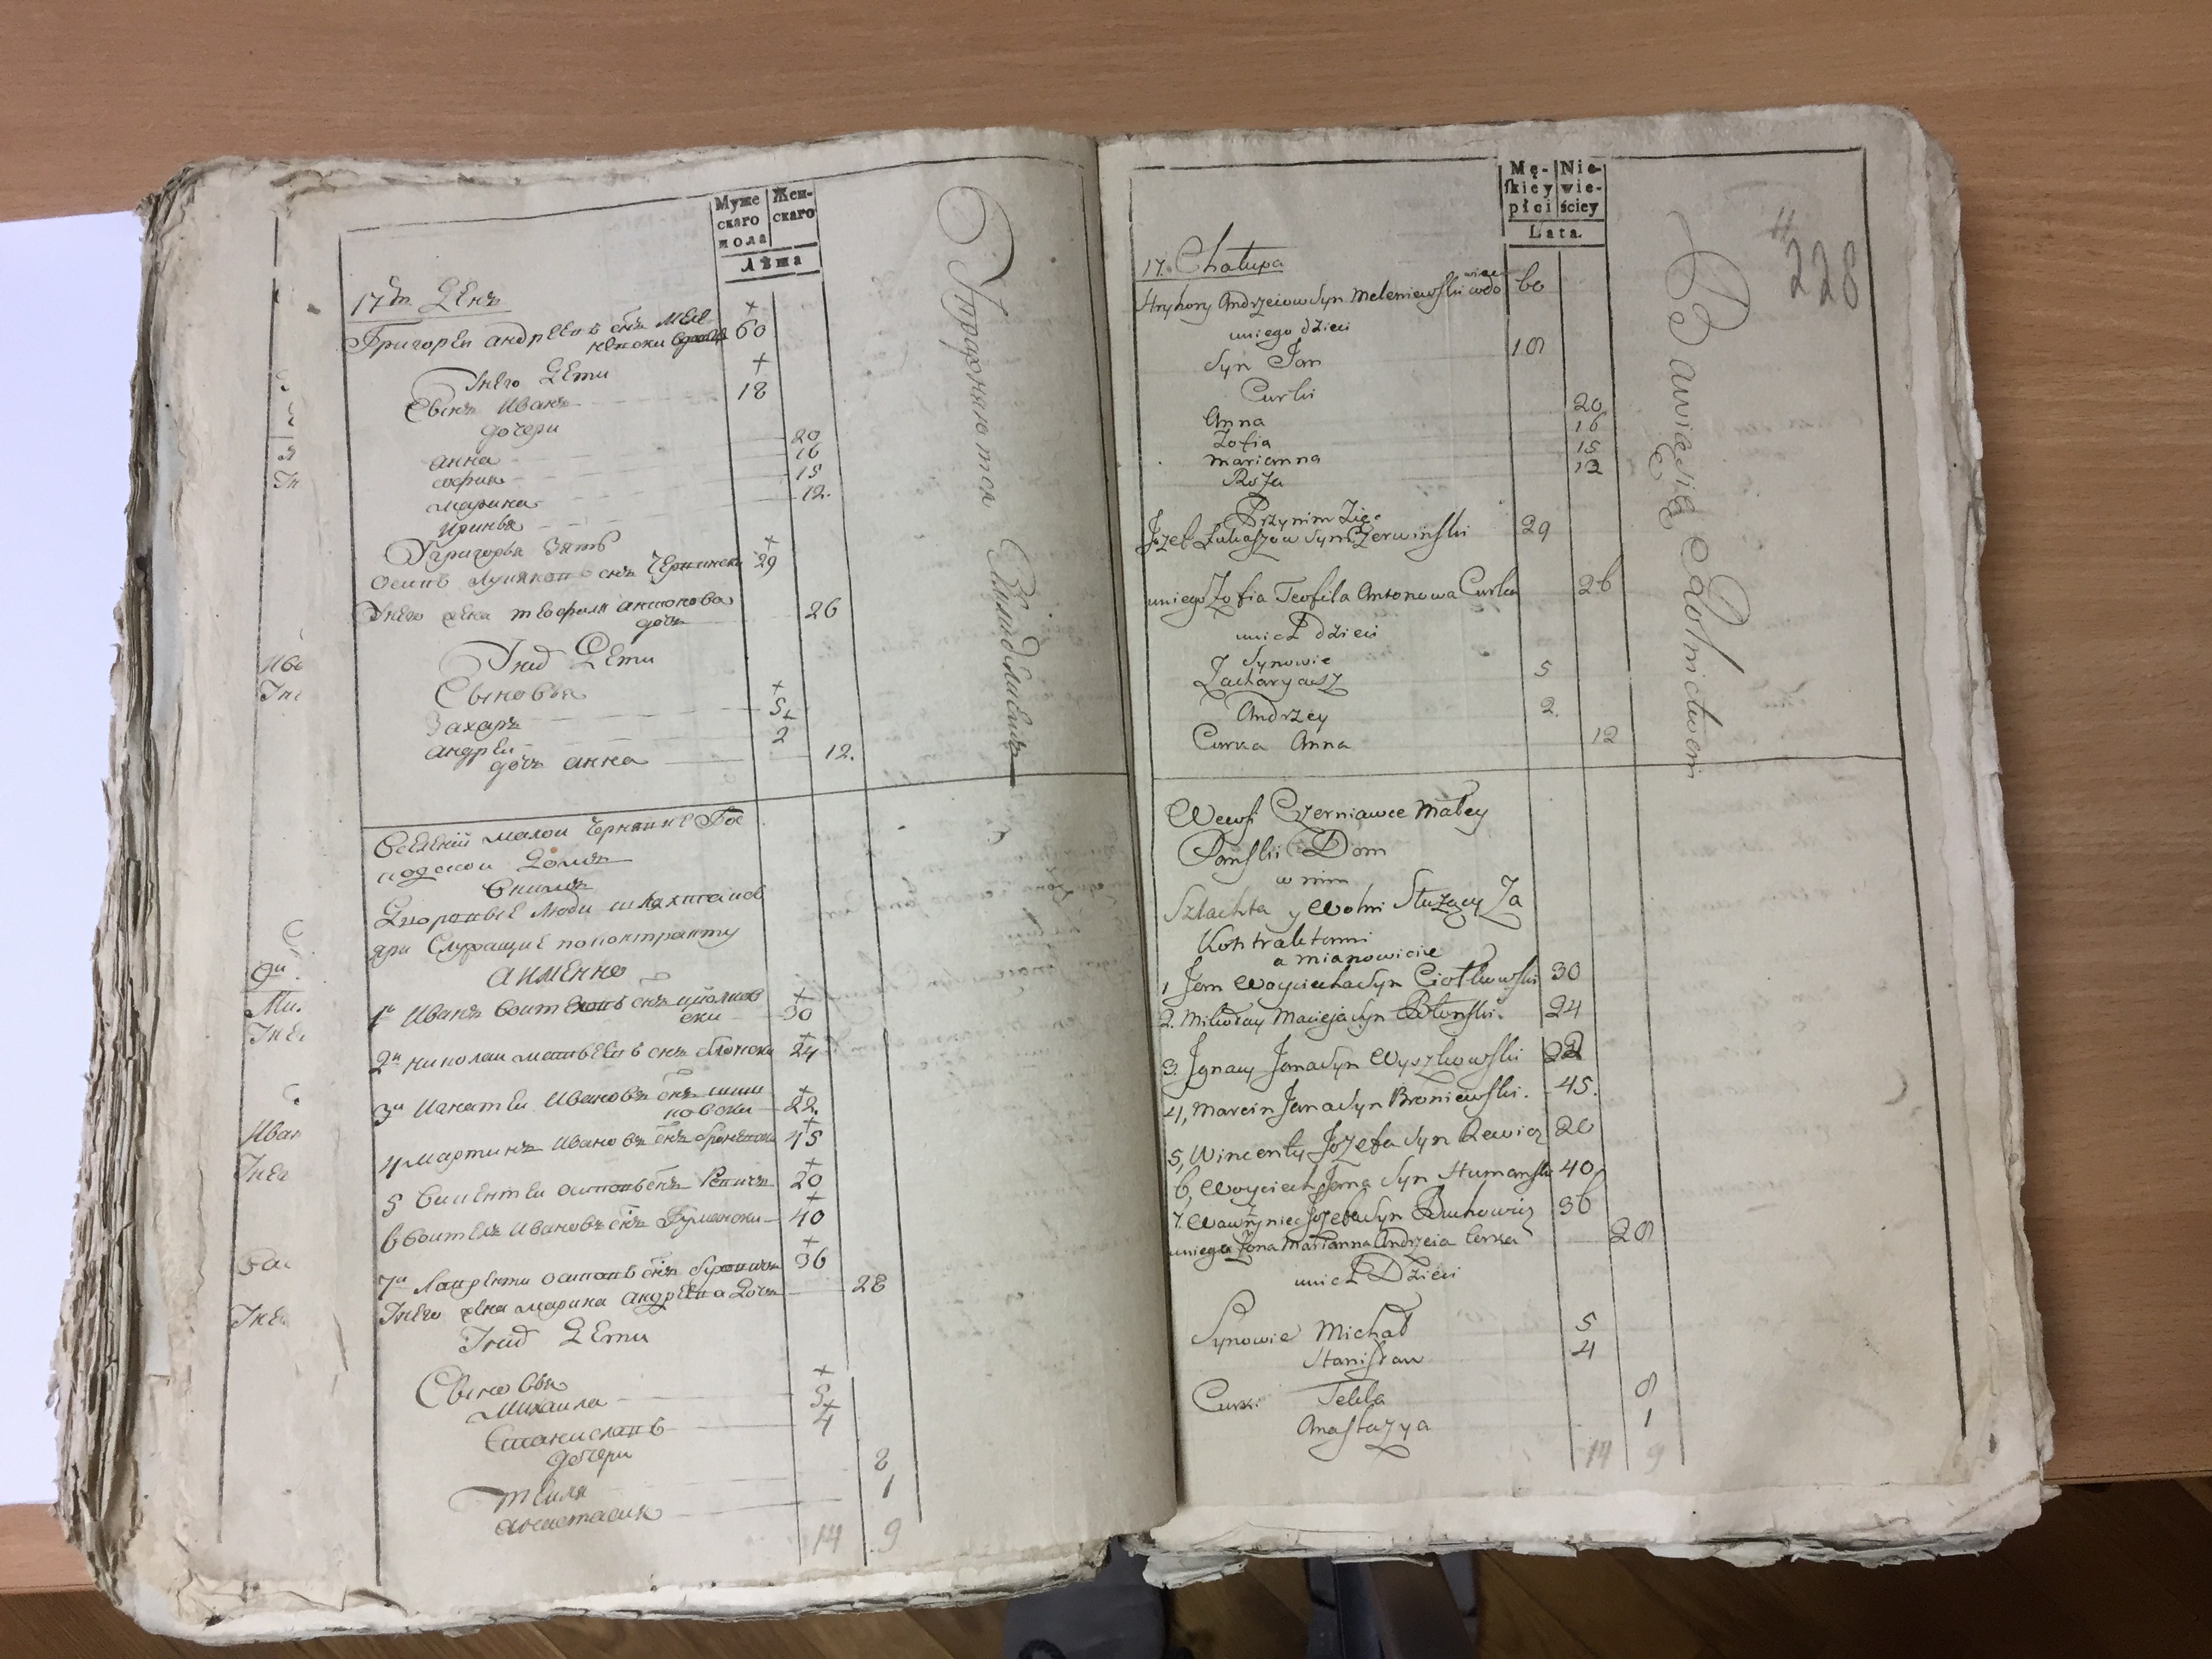 Муже
скаго
пола
Жен-
скаго
Лѣта
17й Домъ
Григорей Андреевъ снъ Меле
невски вдовецъ 60
У него Дети
Сынъ Иванъ 18
дочери
анна 20
софия 16
марина 15
ирина 12.
У григорья Зять
Осипъ Лукяновъ снъ Червински 29
У него жена теофиля антонова
дочь 26
У них Дети
Сыновья
Захаръ 5
андрей 2
дочь анна 12.
Упражняются Хлебопашествомъ
Селении малой Чернявке Го
подской Домъ
В нимъ
Дворовые Люди шляхта и во
Служащие по контракту
а именно
1й Иванъ Войтехов снъ Циолков
ски 30
2й николай матвеевъ снъ блонски 24
3й Игнатей Ивановъ снъ виш
ковски 22.
4 мартинъ Ивановъ снъ броневски 45
5 Викентей осиповъ снъ Ревичъ 20
6 войтехъ Ивановъ снъ Гуменски 40
7й Лаврентий осиповъ снъ 36
У него жена марина андреева Дочь 28
У них Дети
Сыновья
Михаила 5
Станиславъ 4
дочери
текля 8
анастасия 1
14 9
Mę-
ſkiey
płci
Nie-
wie-
ściey
Lata.
228
17. Chałupa
Hryhory Andrzeiow Syn Meleniewski wdo
wiec 60
u niego dzieci
Syn Jan 18
Curki
Anna 20
Zofia 16
Marianna 15
Roza 12
Przy nim Zięć
Jozef Łukaszow Syn Czerwinski 29
u niego Zofia Teofila Antonowa Curka 26
u nich dzieci
Synowie
Zacharyasz 5
Andrzey 2.
Curka Anna 12
Bawią się Rolnictwem
We wsi Czerniawce Małey
Panski Dom
w nim
Szlachta y Wolni Służący Za
Kontraktami
a mianowicie
1 Jan Woyciecha Syn Ciołkowski 30
2. Mikołay Macieja Syn Błonski. 24
3. Jgnacy Jana Syn Wyszkowski 22
4, Marcin Jana Syn Broniewski. 45.
5, Wincenty Jozefa Syn Rewicz 20
6, Woyciech Jana Syn Humanski 40
7. Wawrzyniec Jozefa Syn Buchowicz 36
u niego Żona Marianna Andrzeia Corka 28
u nich Dzieci
Synowie Michał 5
Stanisław 4
Curki Tekla 8
Anastazya 1
14 9